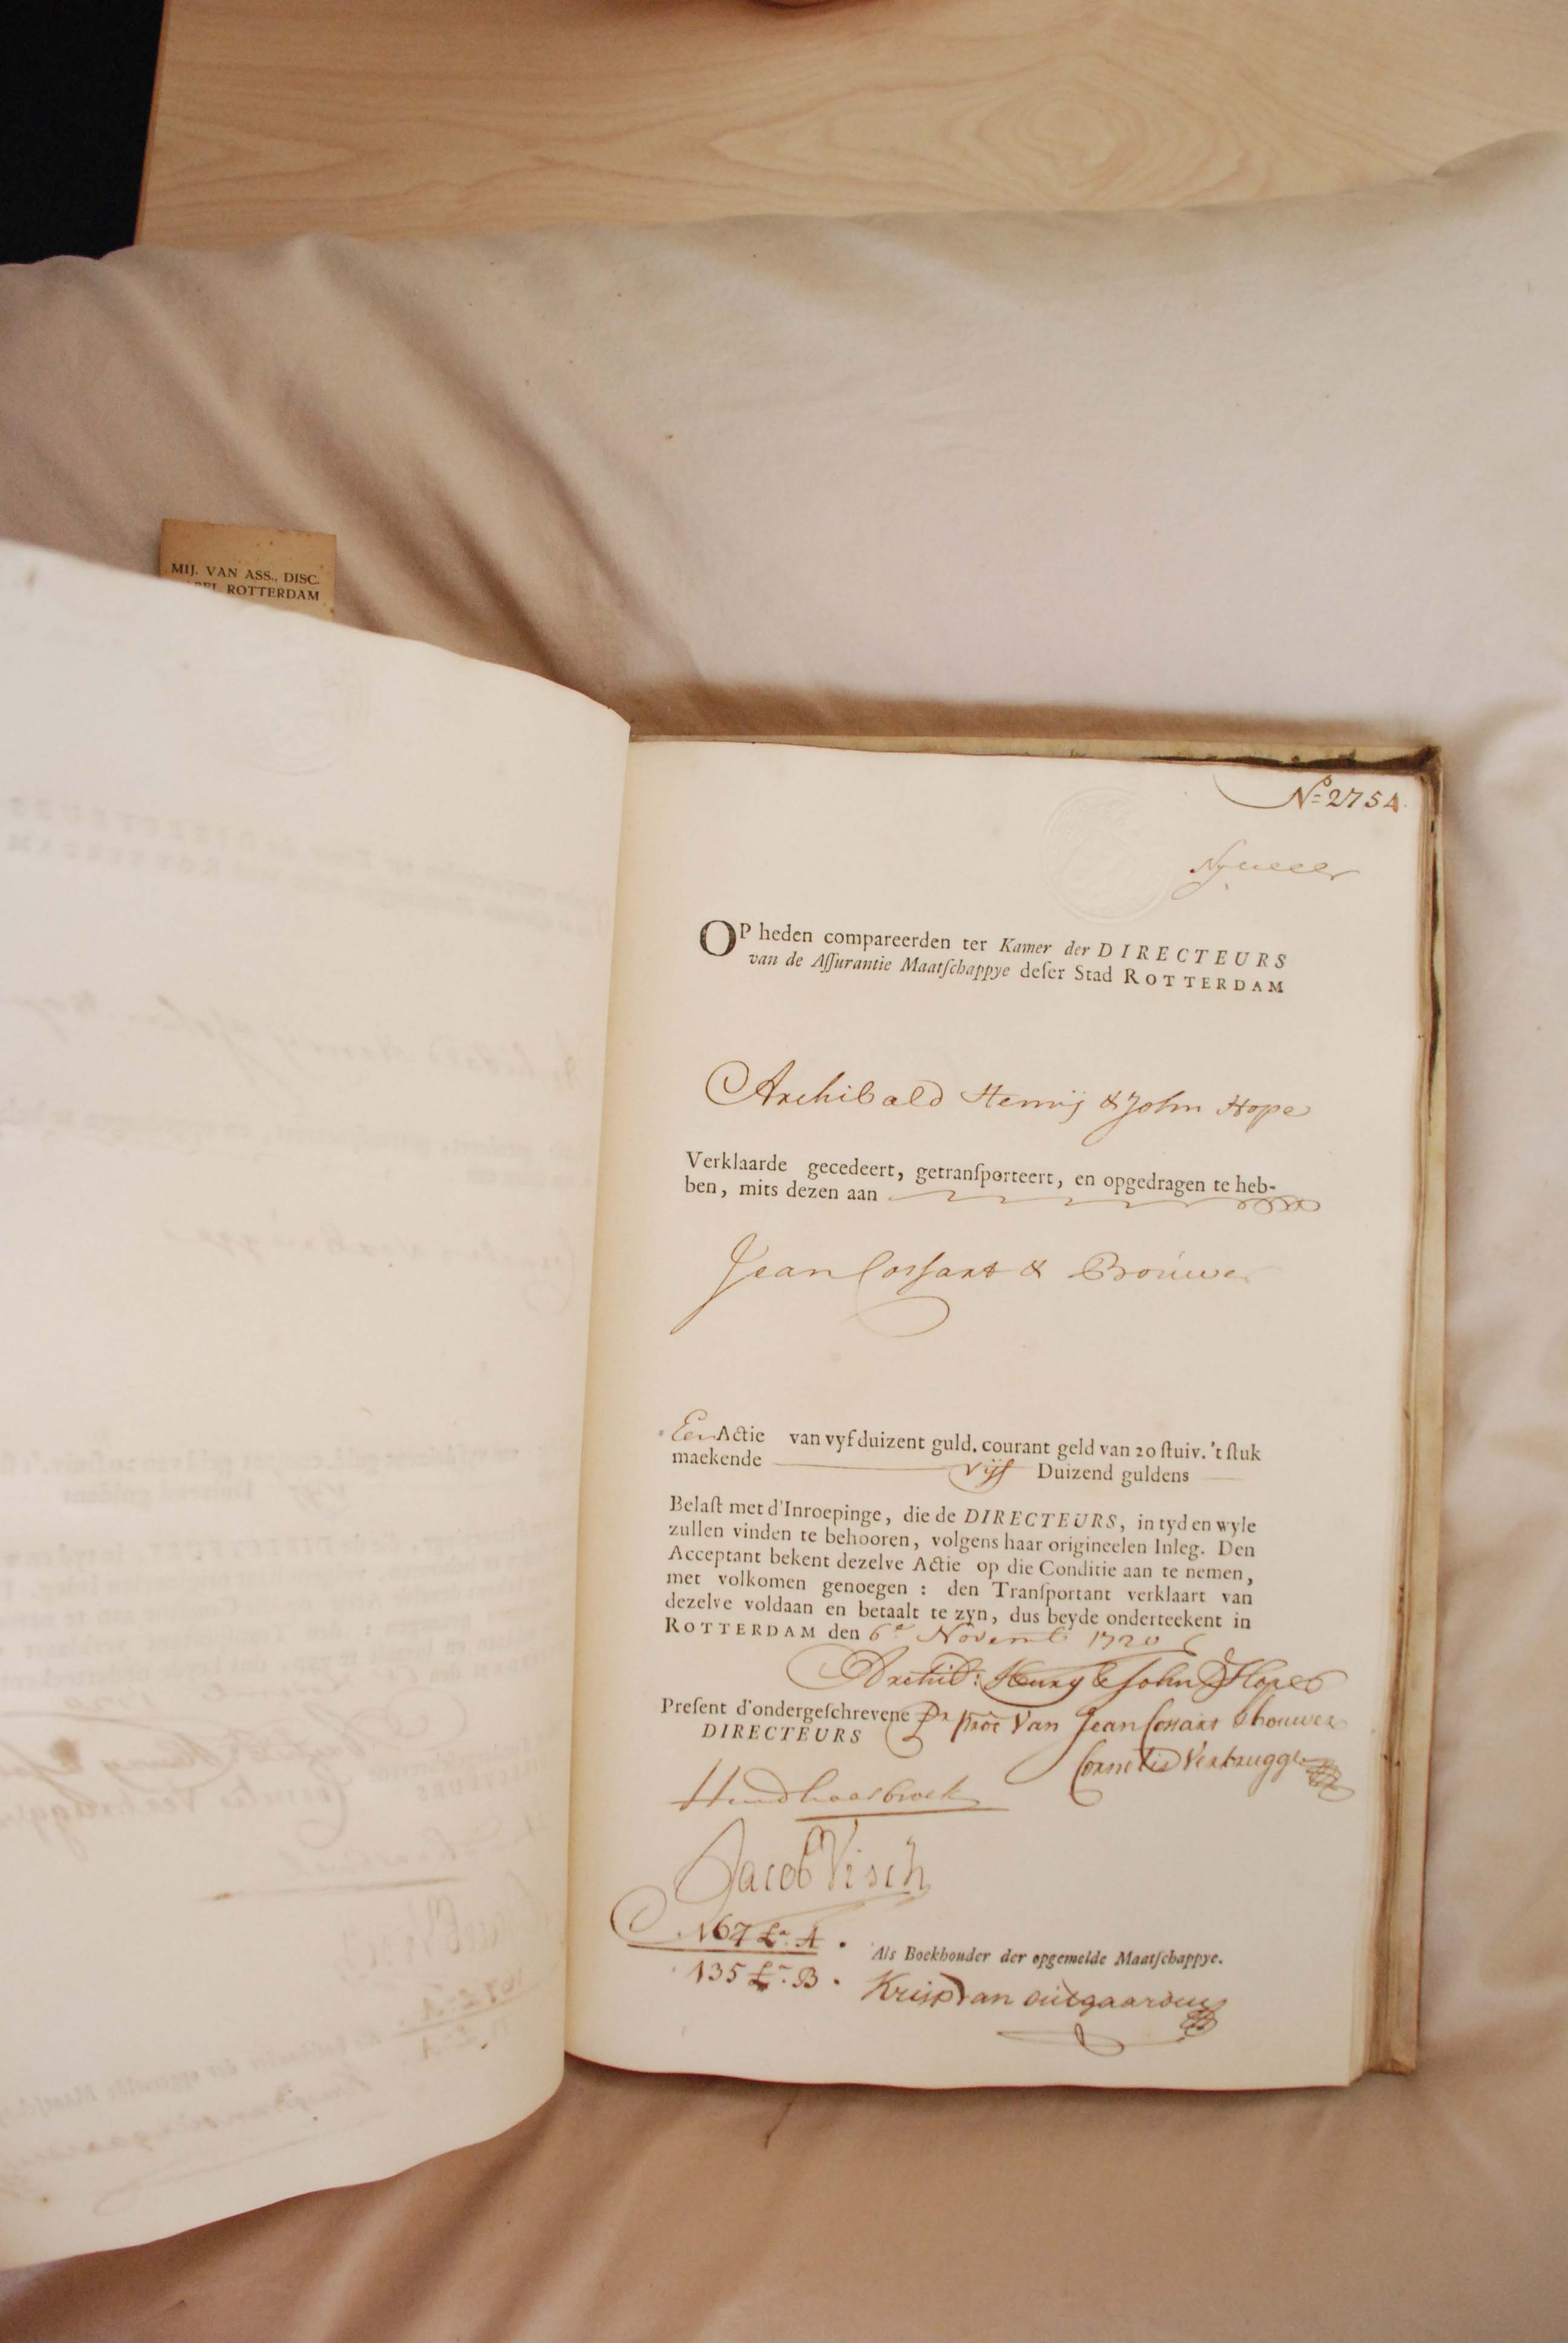 MIJ. VAN ASS., DISC.
ROTTERDAM
No 2754.
OP heden compareerden ter Kamer der DIRECTEURS
van de Aſſurantie Maatſchappye deſer Stad ROTTERDAM
Archibald Henrij & John Hope
Verklaarde gecedeert, getranſporteert, en opgedragen te heb-
ben, mits dezen aan
Jean Coſsart & Brouwer
Een Actie van vyf duizent guld. courant geld van 20 ſtuiv. 't ſtuk
maekende vijf Duizend guldens
Belaſt met d'Inroepinge, die de DIRECTEURS, in tyd en wyle
zullen vinden te behooren, volgens haar origineelen Inleg. Den
Acceptant bekent dezelve Actie op die Conditie aan te nemen,
met volkomen genoegen : den Tranſportant verklaart van
dezelve voldaan en betaalt te zyn, dus beyde onderteekent in
ROTTERDAM den 6e Novemb 1720
Archib: Henry & John Hope
Preſent d'ondergeſchrevene Pr proc Van Jean Coſsart & brouwer
DIRECTEURS
Cornelis Verbrugge
Hend haasbroek
Jacob Visch
167 Lr. A.
135 Lr. B.
Als Boekhouder der opgemelde Maatſchappye.
Krisp van outgaarden